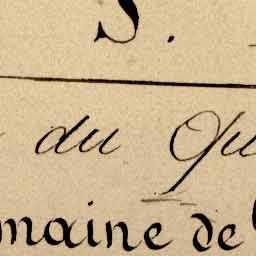 S.
du Qu
maine de